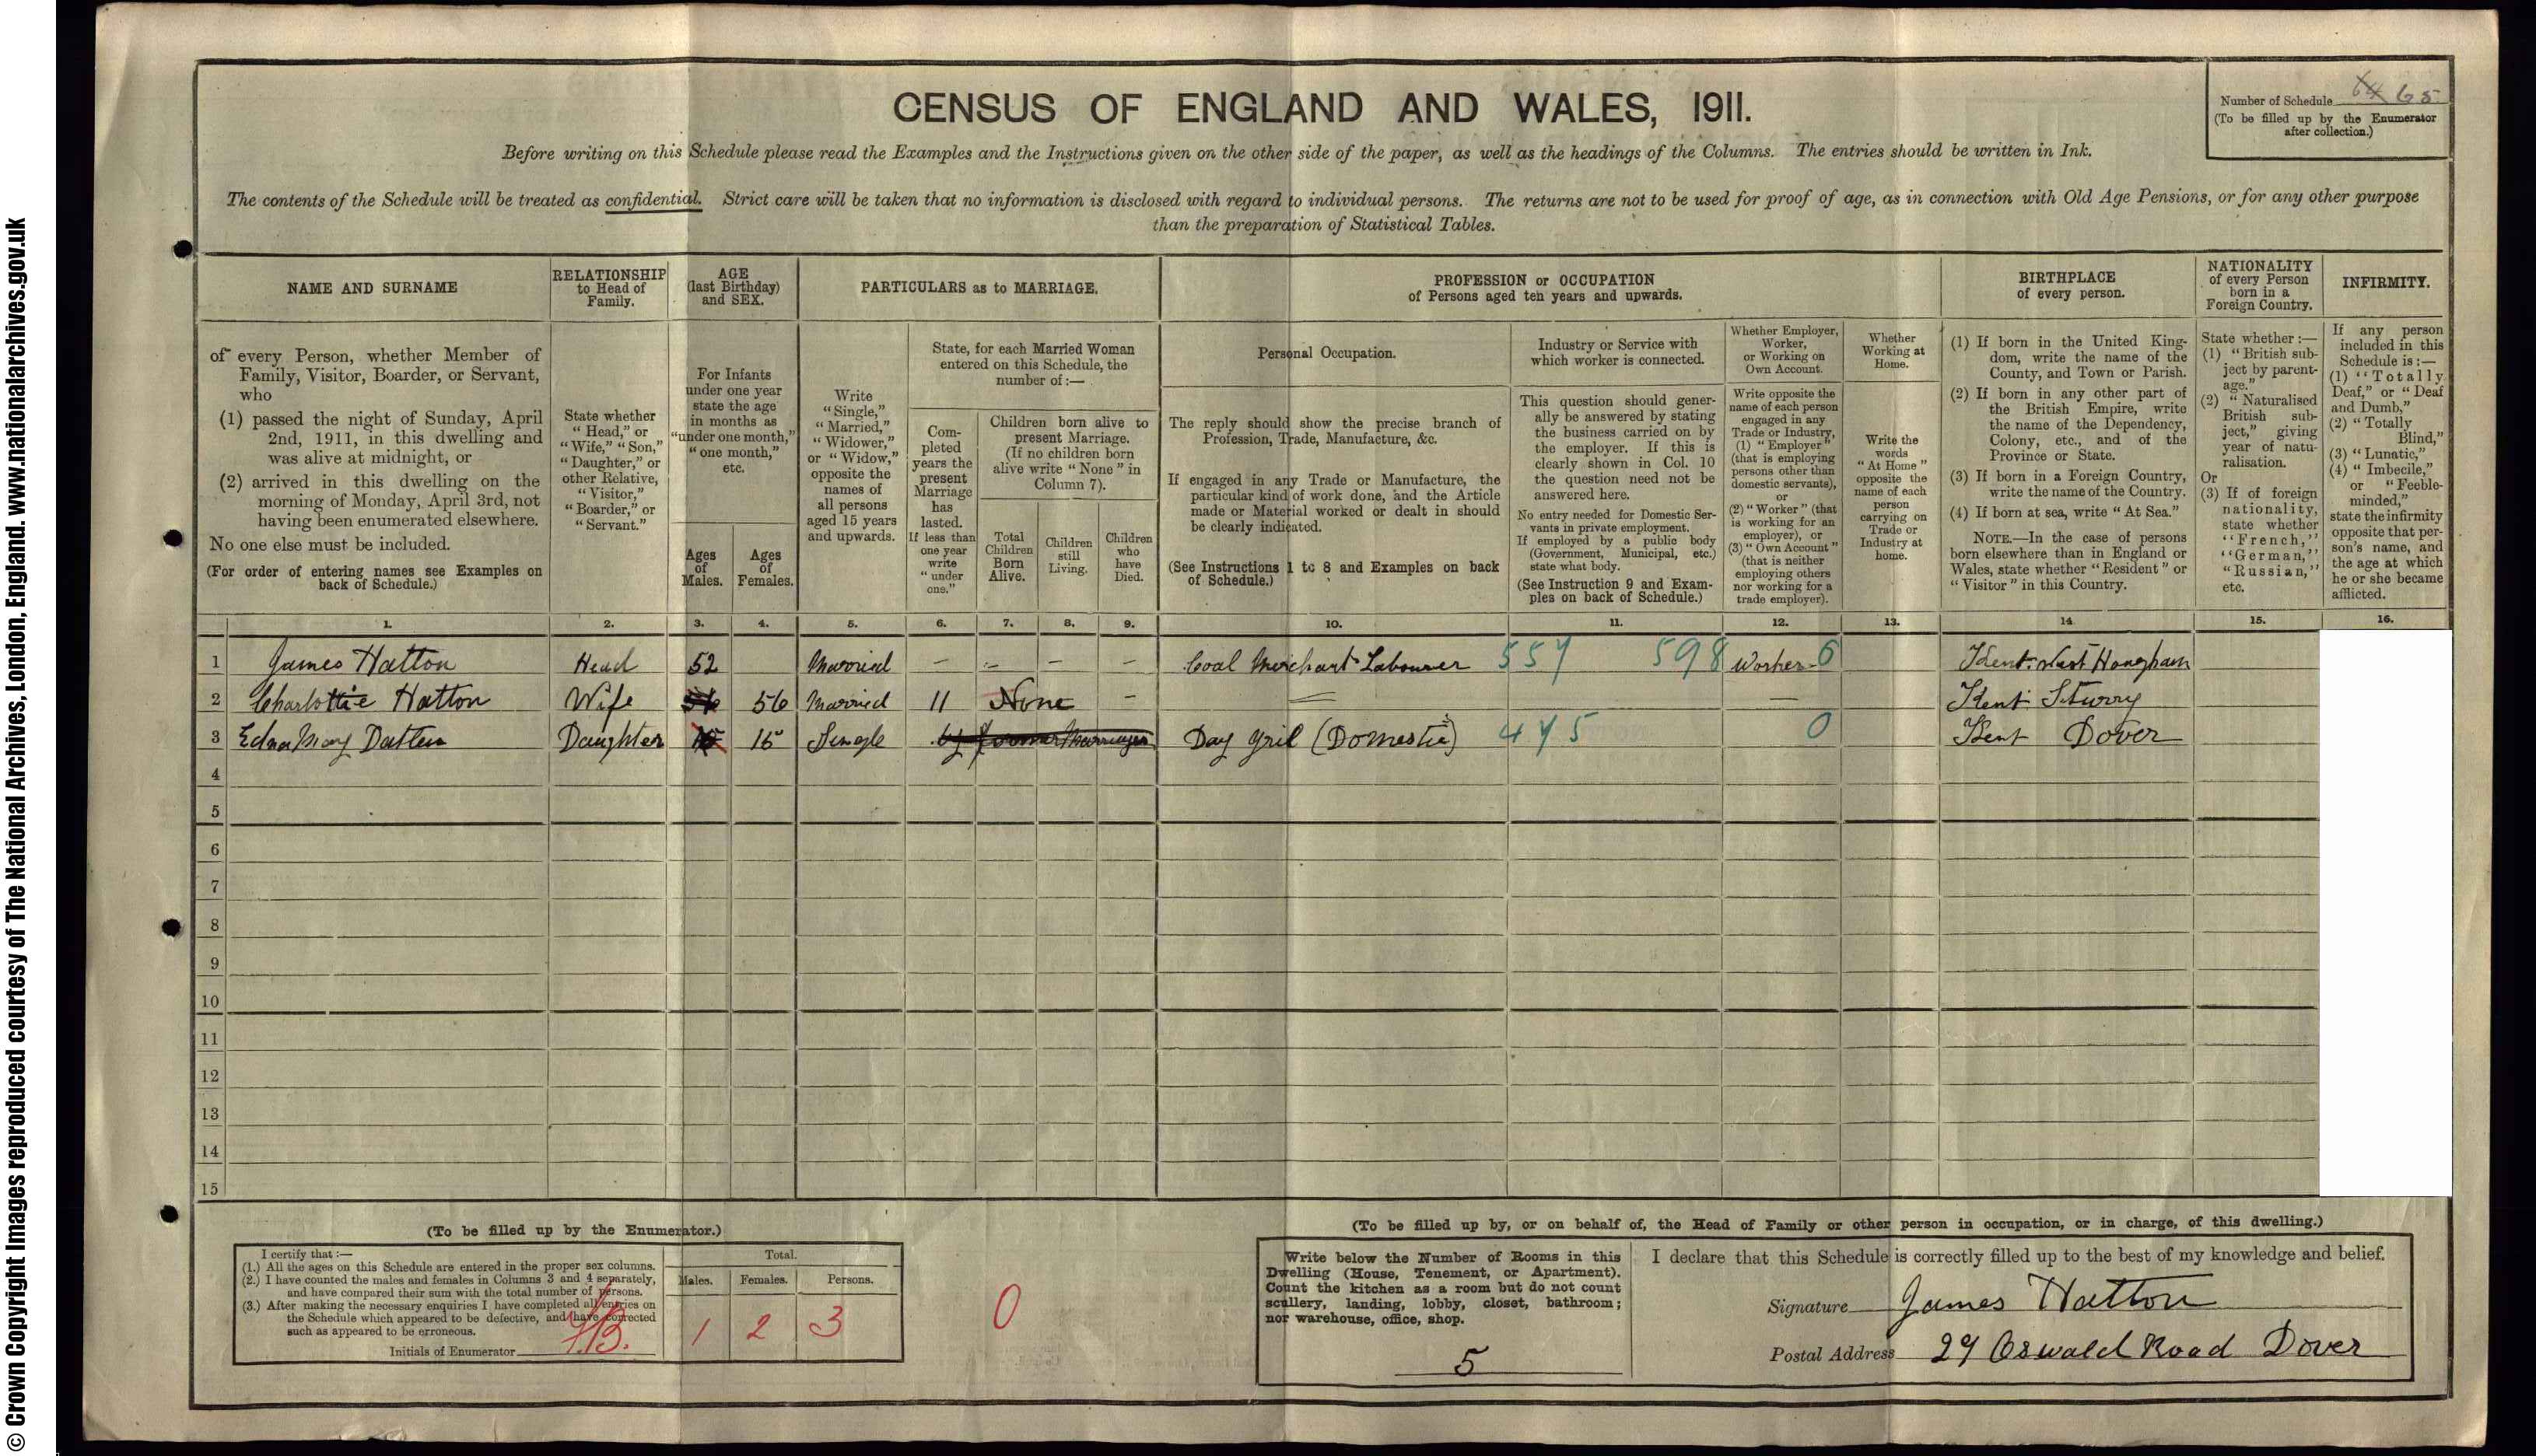 © Crown Copyright Images reproduced courtesy of The National Archives, London, England. www.nationalarchives.gov.uk
CENSUS OF ENGLAND AND WALES, 1911.
Number of Schedule 64 65
(To be filled up by the Enumerator
after collection.)
Before writing on this Schedule please read the Examples and the Instructions given on the other side of the paper, as well as the headings of the Columns. The entries should be written in Ink.
The contents of the Schedule will be treated as confidential. Strict care will be taken that no information is disclosed with regard to individual persons. The returns are not to be used for proof of age, as in connection with Old Age Pensions, or for any other purpose
than the preparation of Statistical Tables.
NAME AND SURNAME
of every Person, whether Member of
Family, Visitor, Boarder, or Servant,
who
(1) passed the night of Sunday, April
2nd, 1911, in this dwelling and
was alive at midnight, or
(2) arrived in this dwelling on the
morning of Monday, April 3rd, not
having been enumerated elsewhere.
No one else must be included.
(For order of entering names see Examples on
back of Schedule.)
RELATIONSHIP
to Head of
Family.
State whether
"Head," or
"Wife," "Son,"
"Daughter," or
other Relative,
"Visitor,"
"Boarder," or
"Servant."
AGE
(last Birthday)
and SEX.
For Infants
under one year
state the age
in months as
"under one month,"
"one month,"
etc.
Ages
of
Males.
Ages
of
Females.
PARTICULARS as to MARRIAGE.
Write
"Single,"
"Married,"
"Widower,"
or "Widow,"
opposite the
names of
all persons
aged 15 years
and upwards.
State, for each Married Woman
entered on this Schedule, the
number of:—
Com-
pleted
years the
present
Marriage
has
lasted.
If less than
one year
write
"under
one."
Children born alive to
present Marriage.
(If no children born
alive write "None" in
Column 7).
Total
Children
Born
Alive.
Children
still
Living.
Children
who
have
Died.
PROFESSION or OCCUPATION
of Persons aged ten years and upwards.
Personal Occupation.
The reply should show the precise branch of
Profession, Trade, Manufacture, &c.
If engaged in any Trade or Manufacture, the
particular kind of work done, and the Article
made or Material worked or dealt in should
be clearly indicated.
(See Instructions 1 to 8 and Examples on back
of Schedule.)
Industry or Service with
which worker is connected.
This question should gener-
ally be answered by stating
the business carried on by
the employer. If this is
clearly shown in Col. 10
the question need not be
answered here.
No entry needed for Domestic Ser-
vants in private employment.
If employed by a public body
(Government, Municipal, etc.)
state what body.
(See Instruction 9 and Exam-
ples on back of Schedule.)
Whether Employer,
Worker,
or Working on
Own Account.
Write opposite the
name of each person
engaged in any
Trade or Industry,
(1) "Employer"
(that is employing
persons other than
domestic servants),
or
(2) "Worker" (that
is working for an
employer), or
(3) "Own Account"
(that is neither
employing others
nor working for a
trade employer).
Whether
Working at
Home.
Write the
words
"At Home"
opposite the
name of each
person
carrying on
Trade or
Industry at
home.
BIRTHPLACE
of every person.
(1) If born in the United King-
dom, write the name of the
County, and Town or Parish.
(2) If born in any other part of
the British Empire, write
the name of the Dependency,
Colony, etc., and of the
Province or State.
(3) If born in a Foreign Country,
write the name of the Country.
(4) If born at sea, write "At Sea."
NOTE.—In the case of persons
born elsewhere than in England or
Wales, state whether "Resident" or
"Visitor" in this Country.
NATIONALITY
of every Person
born in a
Foreign Country.
State whether:—
(1) "British sub-
ject by parent-
age."
(2) "Naturalised
British sub-
ject," giving
year of natu-
ralisation.
Or
(3) If of foreign
nationality,
state whether
"French,"
"German,"
"Russian,"
etc.
INFIRMITY.
If any person
included in this
Schedule is:—
(1) "Totally
Deaf," or "Deaf
and Dumb,"
(2) "Totally
Blind,"
(3) "Lunatic,"
(4) "Imbecile,"
or "Feeble-
minded,"
state the infirmity
opposite that per-
son's name, and
the age at which
he or she became
afflicted.
1. 2. 3. 4. 5. 6. 7. 8. 9. 10. 11. 12. 13. 14 15. 16.
1 James Hatton Head 52 Married – – – – Coal Merchant Labourer 557 598 Worker 6 Kent West Hougham
2 Charlottie Hatton Wife 56 56 Married 11 None – Kent Sturry
3 Edna Mary Datten Daughter 15 15 Single by former Marriage Day Gril (Domestic) 475 0 Kent Dover
4
5
6
7
8
9
10
11
12
13
14
15
(To be filled up by the Enumerator.)
I certify that:—
(1.) All the ages on this Schedule are entered in the proper sex columns.
(2.) I have counted the males and females in Columns 3 and 4 separately,
and have compared their sum with the total number of persons.
(3.) After making the necessary enquiries I have completed all entries on
the Schedule which appeared to be defective, and have corrected
such as appeared to be erroneous.
Initials of Enumerator
Total.
Males. Females. Persons.
1 2 3
0
(To be filled up by, or on behalf of, the Head of Family or other person in occupation, or in charge, of this dwelling.)
Write below the Number of Rooms in this
Dwelling (House, Tenement, or Apartment).
Count the kitchen as a room but do not count
scullery, landing, lobby, closet, bathroom;
nor warehouse, office, shop.
5
I declare that this Schedule is correctly filled up to the best of my knowledge and belief.
Signature James Hatton
Postal Address 29 Oswald Road Dover